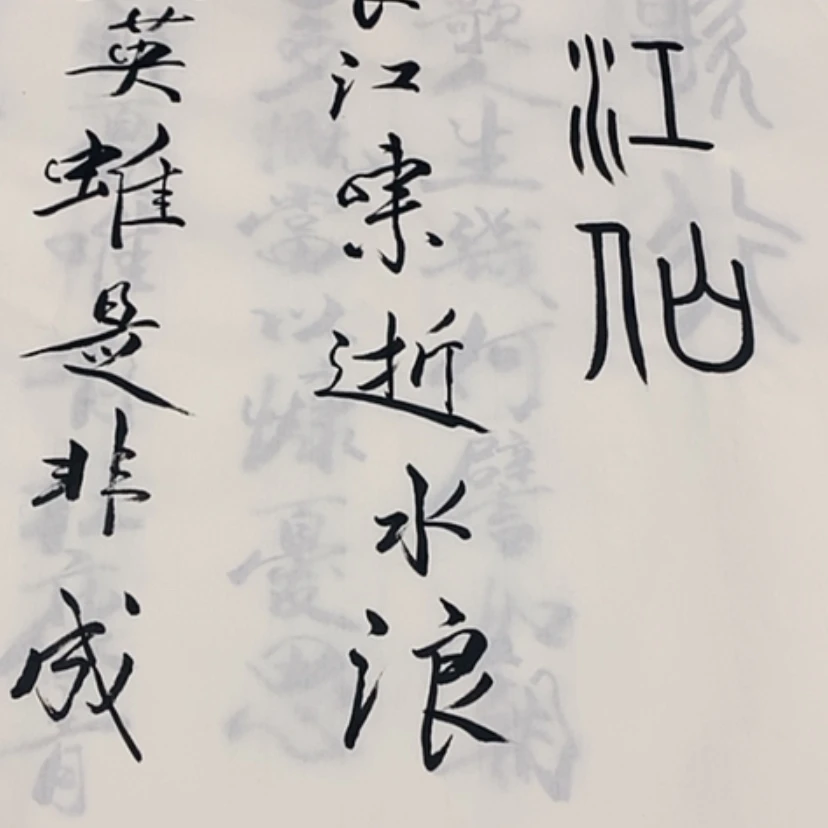 江仙
江東逝水浪
英雄是非成